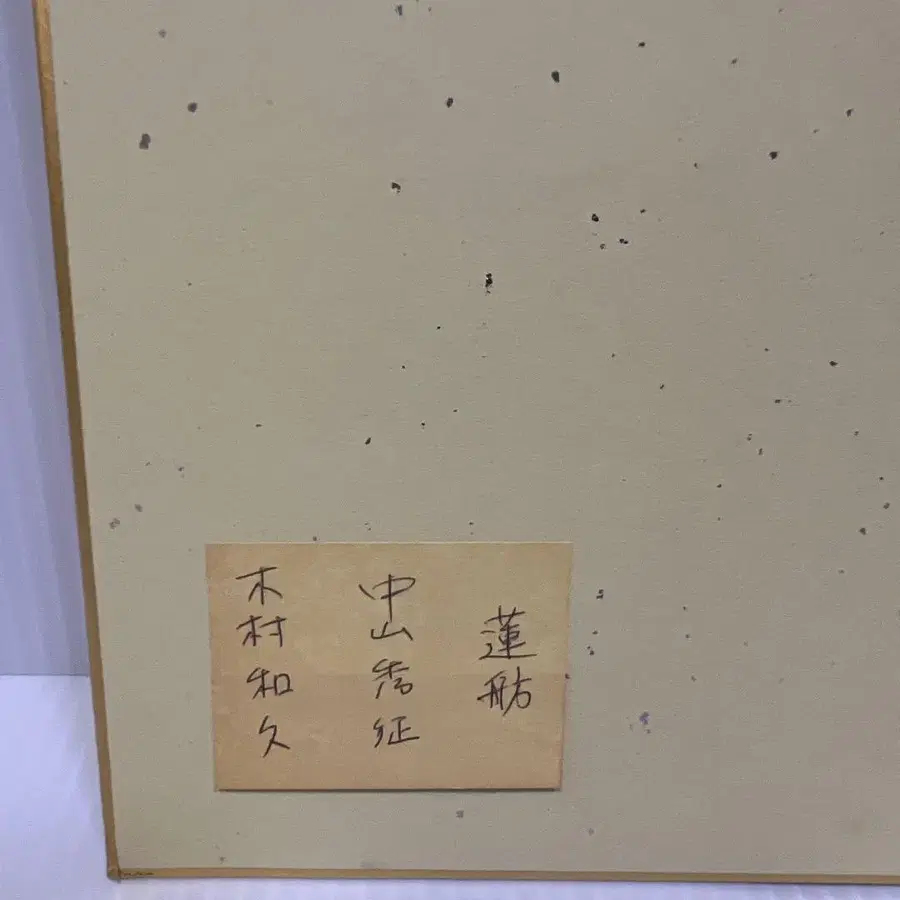 蓮舫
中山秀征
木村和久